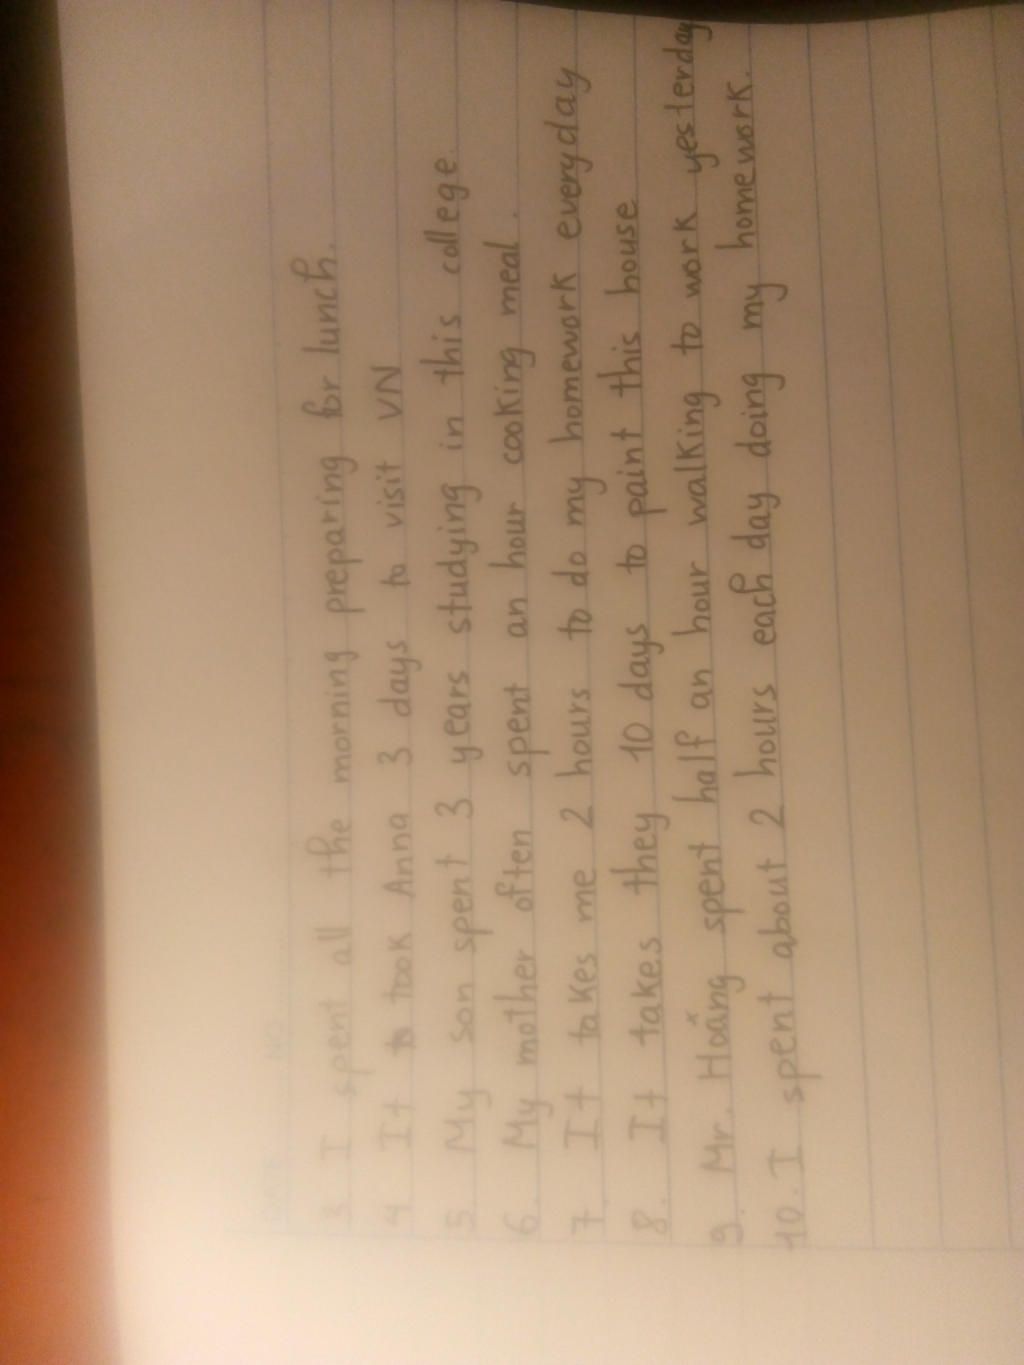 DATE NO.
3. I spent all the morning preparing for lunch.
4. It took Anna 3 days to visit VN
5. My son spent 3 years studying in this college.
6. My mother often spent an hour cooking meal.
7. It takes me 2 hours to do my homework everyday
8. It takes they 10 days to paint this house
9. Mr. Hoàng spent half an hour walking to work yesterday
10. I spent about 2 hours each day doing my homework.